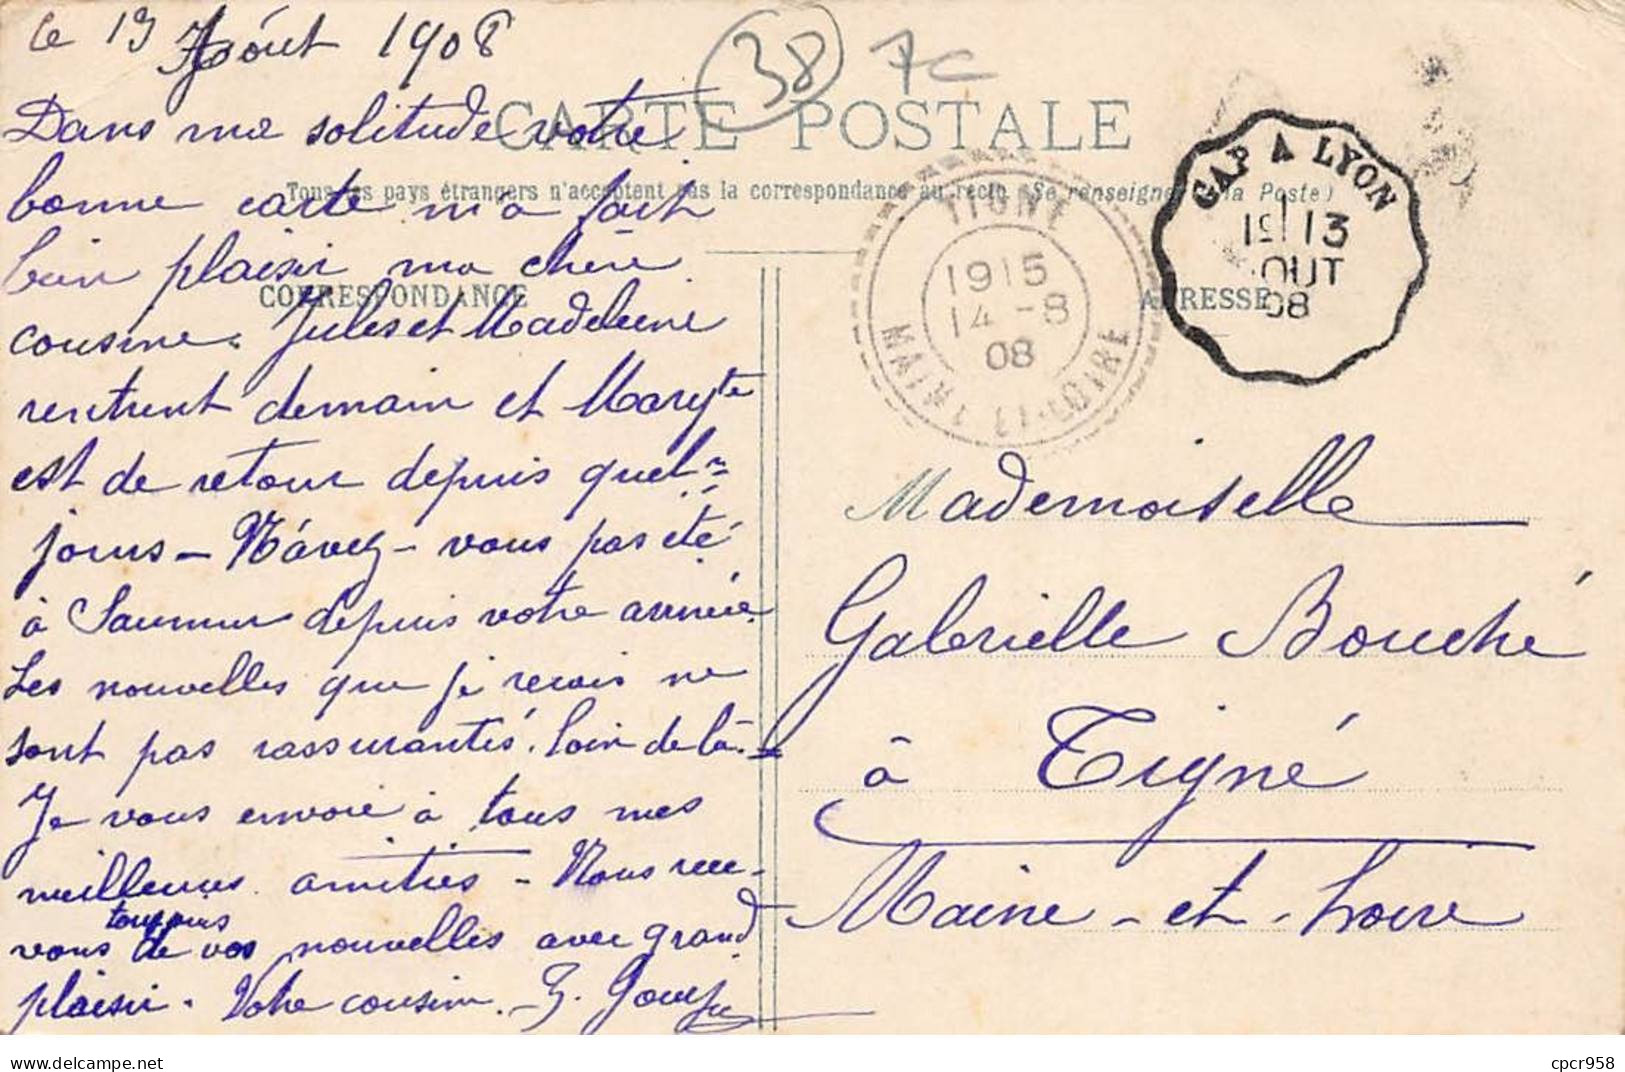 le 13 Août 1908
38
7c
CARTE POSTALE
Tous les pays étrangers n'acceptent pas la correspondance au recto (Se renseigner à la Poste)
CORRESPONDANCE
ADRESSE
TIGNÉ
1915
14-8
08
MAINE-ET-LOIRE
GAP A LYON
13
AOUT
08
Dans ma solitude votre
bonne carte m'a fait
bien plaisir ma chère
cousine. Jules et Madeleine
rentrent demain et Marg^te
est de retour depuis quel=
jours - N'avez-vous pas été
à Saumur depuis votre arrivée.
Les nouvelles que je reçois ne
sont pas rassurantes. loin de là.
Je vous envoie à tous mes
meilleures amitiés - Nous rece-
toujours
vons de vos nouvelles avec grand
plaisir. Votre cousin.
Mademoiselle
Gabrielle Bouché
à Tigné
Maine-et-Loire
cpcr958